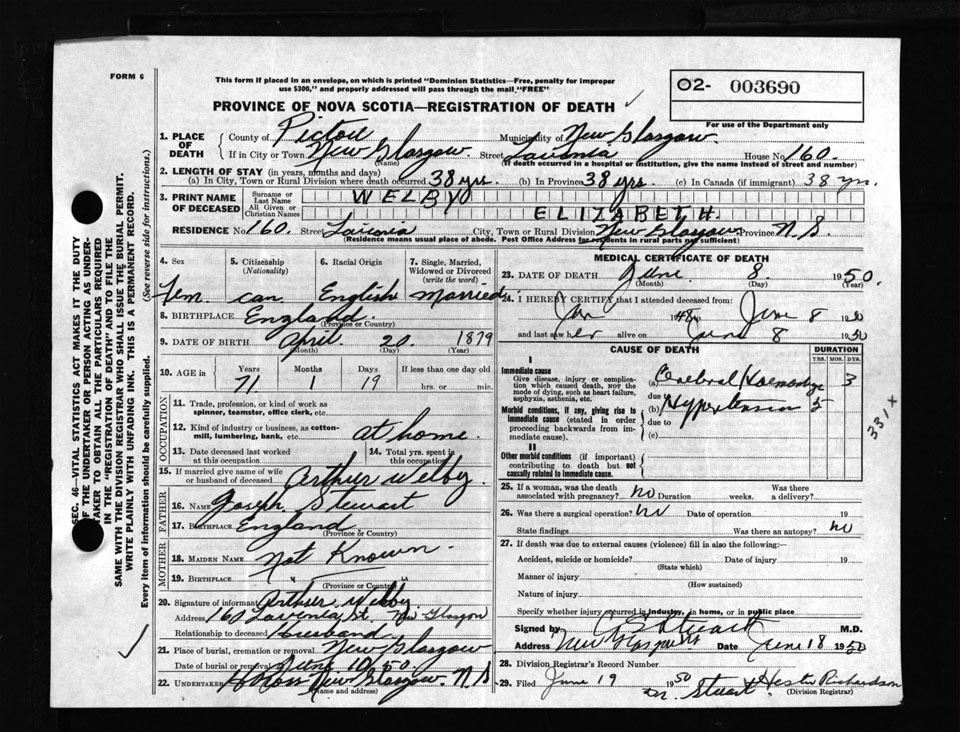 FORM 6
This form if placed in an envelope, on which is printed "Dominion Statistics—Free, penalty for improper
use $300," and properly addressed will pass through the mail "FREE"
O2- 003690
For use of the Department only
PROVINCE OF NOVA SCOTIA—REGISTRATION OF DEATH
1. PLACE OF DEATH County of Pictou Municipality of New Glasgow
If in City or Town New Glasgow (Name) Street Lavinia House No 160
(If death occurred in a hospital or institution, give the name instead of street and number)
2. LENGTH OF STAY (in years, months and days)
(a) In City, Town or Rural Division where death occurred 38 yrs. (b) In Province 38 yrs. (c) In Canada (if immigrant) 38 yrs.
3. PRINT NAME OF DECEASED Surname or Last Name WELBY
All Given or Christian Names ELIZABETH.
RESIDENCE No 160. Street Lavinia City, Town or Rural Division New Glasgow Province N.S.
(Residence means usual place of abode. Post Office Address for residents in rural parts not sufficient)
4. Sex 5. Citizenship (Nationality) 6. Racial Origin 7. Single, Married, Widowed or Divorced (write the word)
Fem. can English married
8. BIRTHPLACE England
(Province or Country)
9. DATE OF BIRTH April 20 1879
(Month) (Day) (Year)
10. AGE in Years Months Days If less than one day old
71 1 19 hrs. or min.
OCCUPATION
11. Trade, profession, or kind of work as
spinner, teamster, office clerk, etc.
12. Kind of industry or business, as cotton-
mill, lumbering, bank, etc. at home.
13. Date deceased last worked at this occupation 14. Total yrs. spent in this occupation
15. If married give name of wife
or husband of deceased Arthur Welby
FATHER
16. NAME Joseph Stewart
17. BIRTHPLACE England
(Province or Country)
MOTHER
18. MAIDEN NAME Not Known
19. BIRTHPLACE " "
(Province or Country)
20. Signature of informant Arthur Welby
Address 160 Lavinia St. New Glasgow
Relationship to deceased Husband
21. Place of burial, cremation or removal New Glasgow
Date of burial or removal June 10 50
22. UNDERTAKER New Glasgow. N.S.
(Name and address)
MEDICAL CERTIFICATE OF DEATH
23. DATE OF DEATH June 8. 1950
(Month) (Day) (Year)
24. I HEREBY CERTIFY that I attended deceased from:
Jan 1948 to June 8 1950
and last saw her alive on June 8 1950
CAUSE OF DEATH DURATION
YRS. MOS. DYS.
I
Immediate cause
Give disease, injury or complica-
tion which caused death, not the
mode of dying, such as heart failure,
asphyxia, asthenia, etc.
(a) Cerebral Haemorrhage 3
due to
Morbid conditions, if any, giving rise to
immediate cause (stated in order
proceeding backwards from im-
mediate cause).
(b) Hypertension 5
due to
(c)
331X
II
Other morbid conditions (if important)
contributing to death but not causally
related to immediate cause.
25. If a woman, was the death
associated with pregnancy? no Duration weeks. Was there a delivery?
26. Was there a surgical operation? no Date of operation 19
State findings Was there an autopsy? no
27. If death was due to external causes (violence) fill in also the following:—
Accident, suicide or homicide? Date of injury 19
(State which)
Manner of injury
(How sustained)
Nature of injury
Specify whether injury occurred in industry, in home, or in public place
Signed by M.D.
Address New Glasgow Date June 18 1950
28. Division Registrar's Record Number
29. Filed June 19 1950 Hester Richardson
(Division Registrar)
SEC. 46—VITAL STATISTICS ACT MAKES IT THE DUTY
OF THE UNDERTAKER OR PERSON ACTING AS UNDER-
TAKER TO OBTAIN ALL THE PARTICULARS REQUIRED
IN THE "REGISTRATION OF DEATH" AND TO FILE THE
SAME WITH THE DIVISION REGISTRAR WHO SHALL ISSUE THE BURIAL PERMIT.
WRITE PLAINLY WITH UNFADING INK. THIS IS A PERMANENT RECORD.
Every item of information should be carefully supplied. (See reverse side for instructions.)